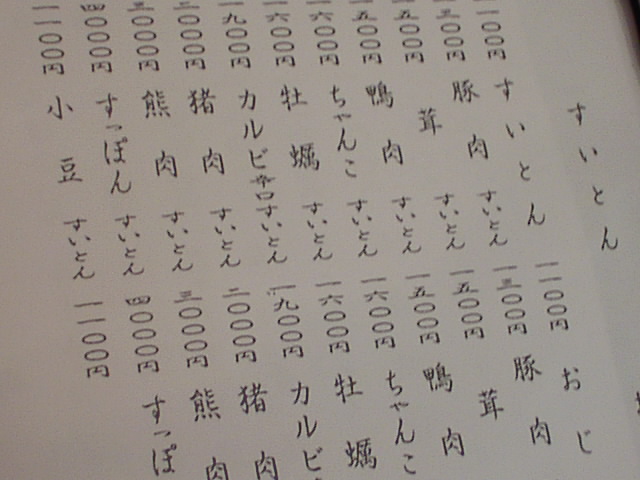 すいとん
一一〇〇円 すいとん 一一〇〇円 おじ
一三〇〇円 豚肉すいとん 一三〇〇円 豚肉
一五〇〇円 茸すいとん 一五〇〇円 茸
一五〇〇円 鴨肉すいとん 一五〇〇円 鴨肉
一六〇〇円 ちゃんこすいとん 一六〇〇円 ちゃんこ
一六〇〇円 牡蠣すいとん 一六〇〇円 牡蠣
一九〇〇円 カルビ辛口すいとん 一九〇〇円 カルビ
二〇〇〇円 猪肉すいとん 二〇〇〇円 猪肉
三〇〇〇円 熊肉すいとん 三〇〇〇円 熊肉
四〇〇〇円 すっぽんすいとん 四〇〇〇円 すっぽ
一一〇〇円 小豆すいとん 一一〇〇円